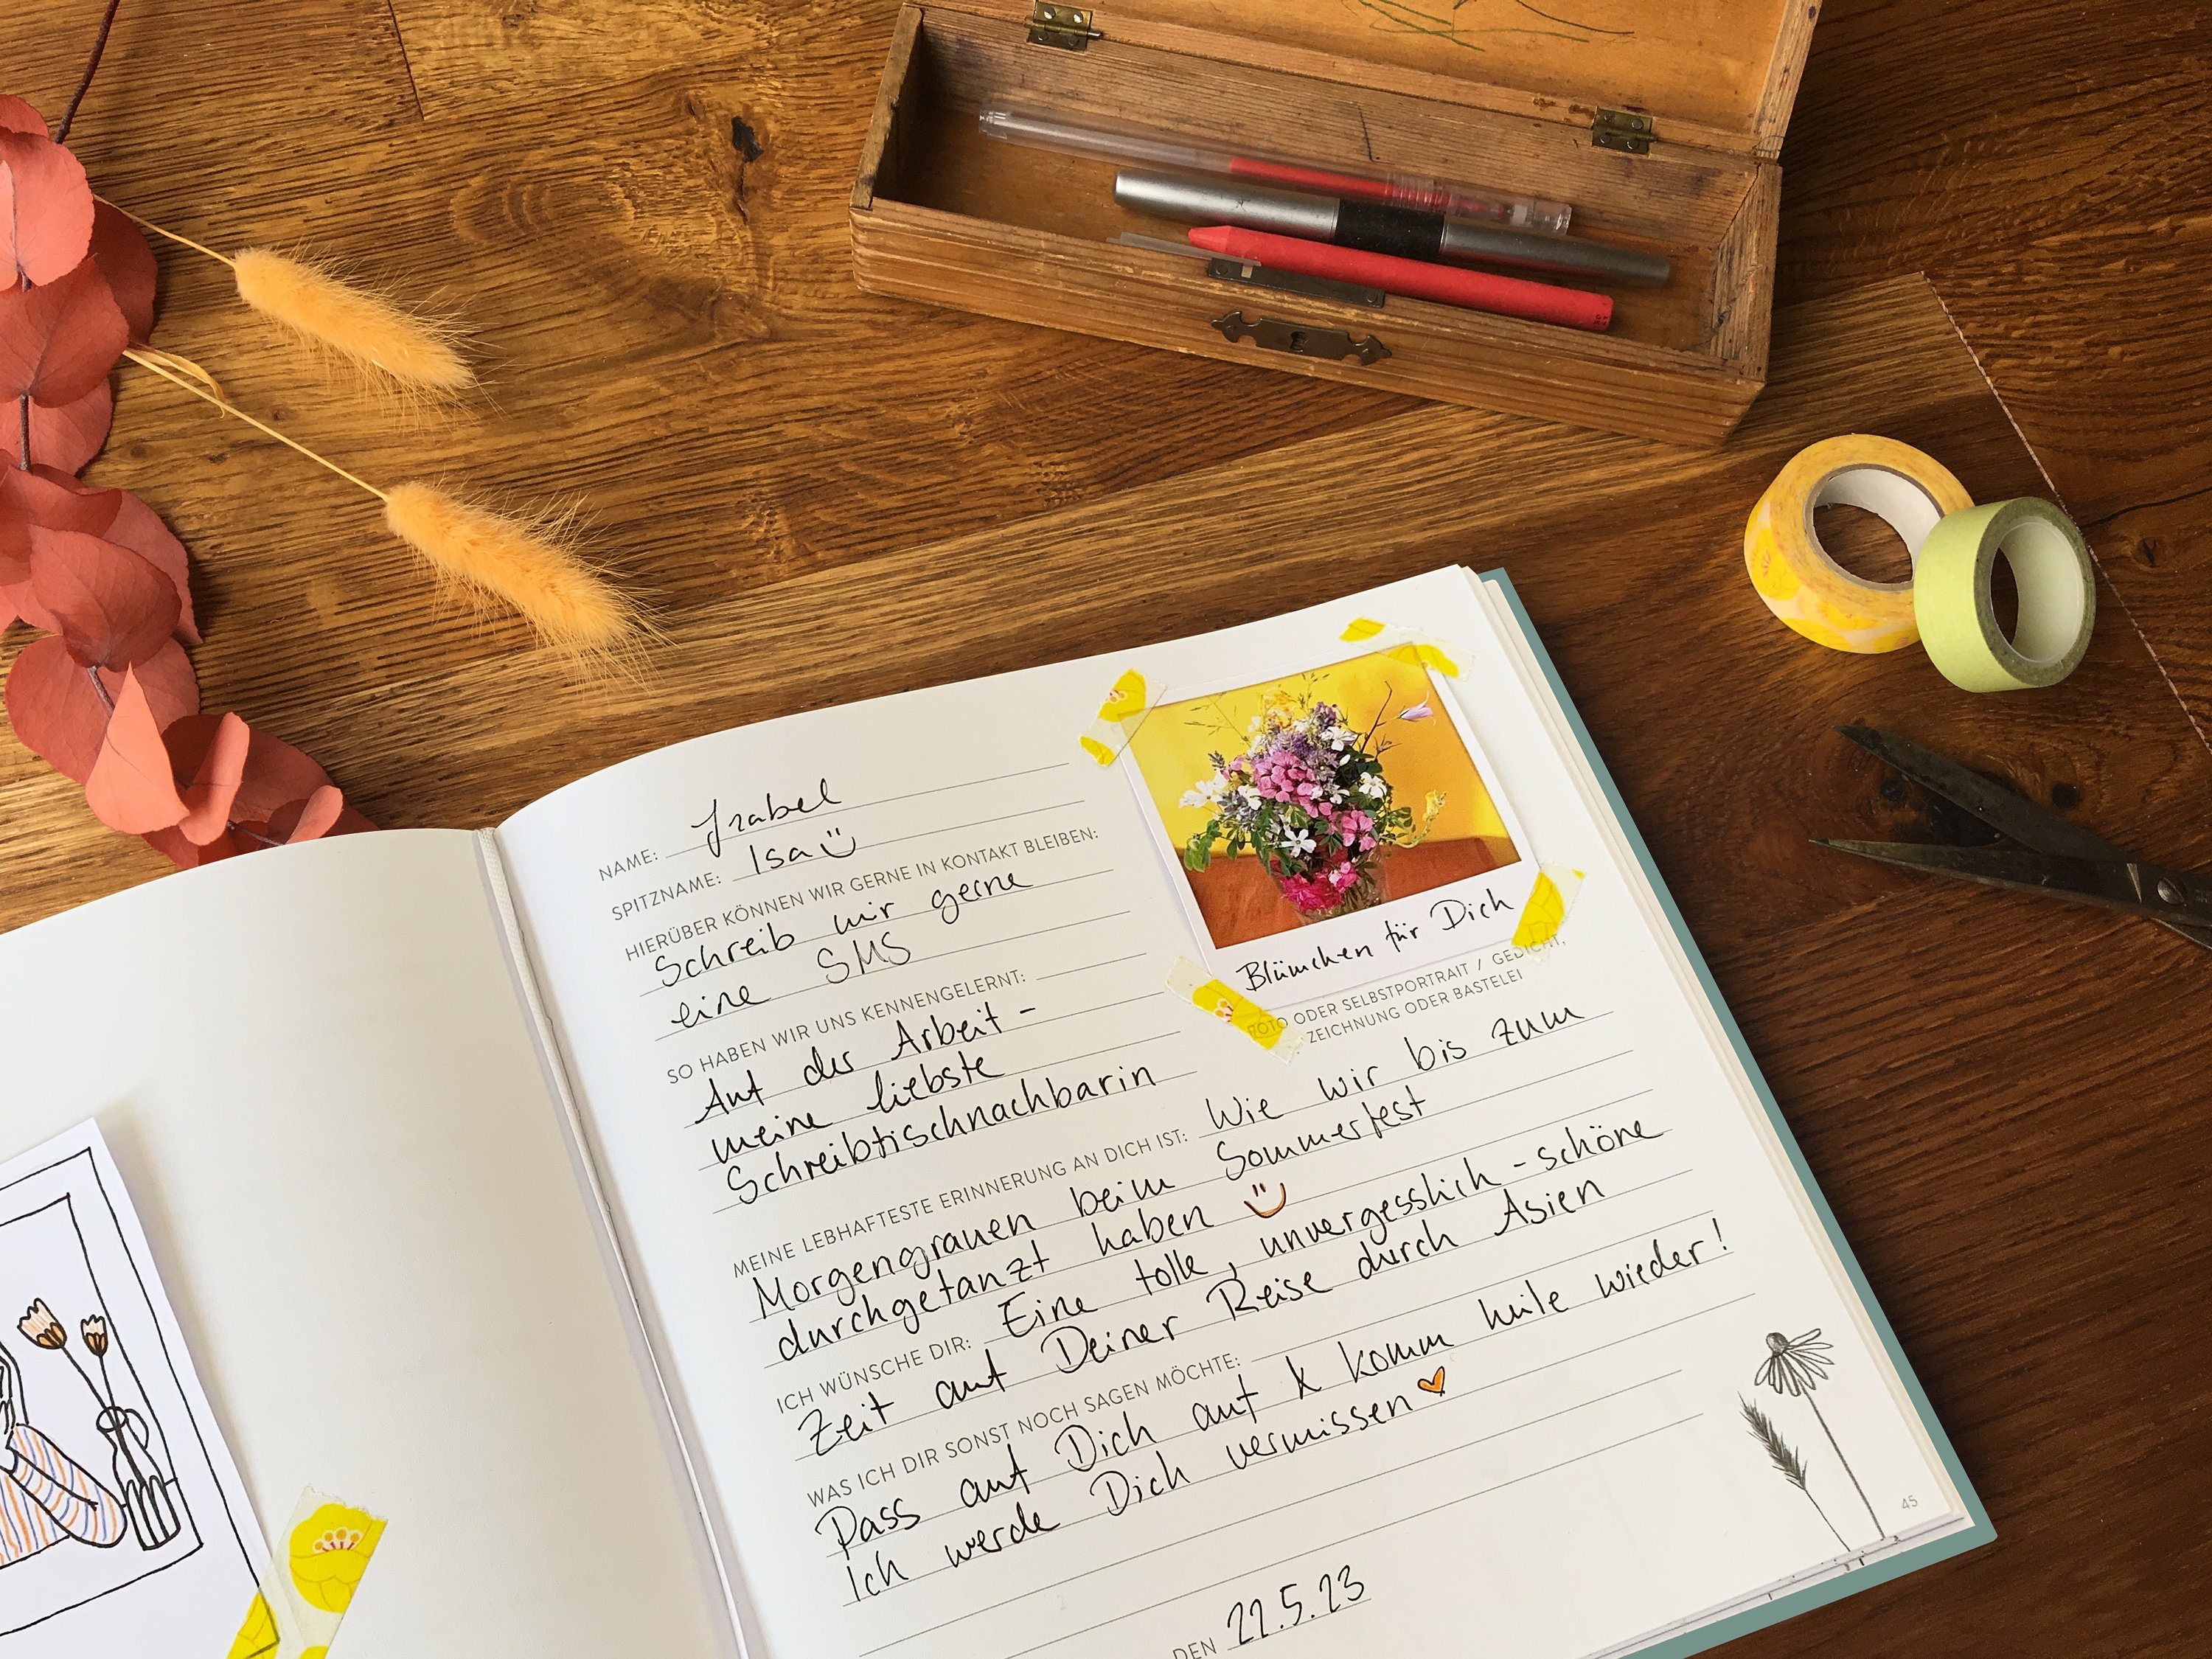 NAME: Izabel
SPITZNAME: Isa
HIERÜBER KÖNNEN WIR GERNE IN KONTAKT BLEIBEN:
Schreib mir gerne
eine SMS
SO HABEN WIR UNS KENNENGELERNT:
Auf der Arbeit -
meine liebste
Schreibtischnachbarin
Blümchen für Dich
FOTO ODER SELBSTPORTRAIT / GEDICHT,
ZEICHNUNG ODER BASTELEI
MEINE LEBHAFTESTE ERINNERUNG AN DICH IST: Wie wir bis zum
Morgengrauen beim Sommerfest
durchgetanzt haben
ICH WÜNSCHE DIR: Eine tolle, unvergesslich-schöne
Zeit auf Deiner Reise durch Asien
WAS ICH DIR SONST NOCH SAGEN MÖCHTE:
Pass auf Dich auf & komm heile wieder!
Ich werde Dich vermissen
DEN 22.5.23
45